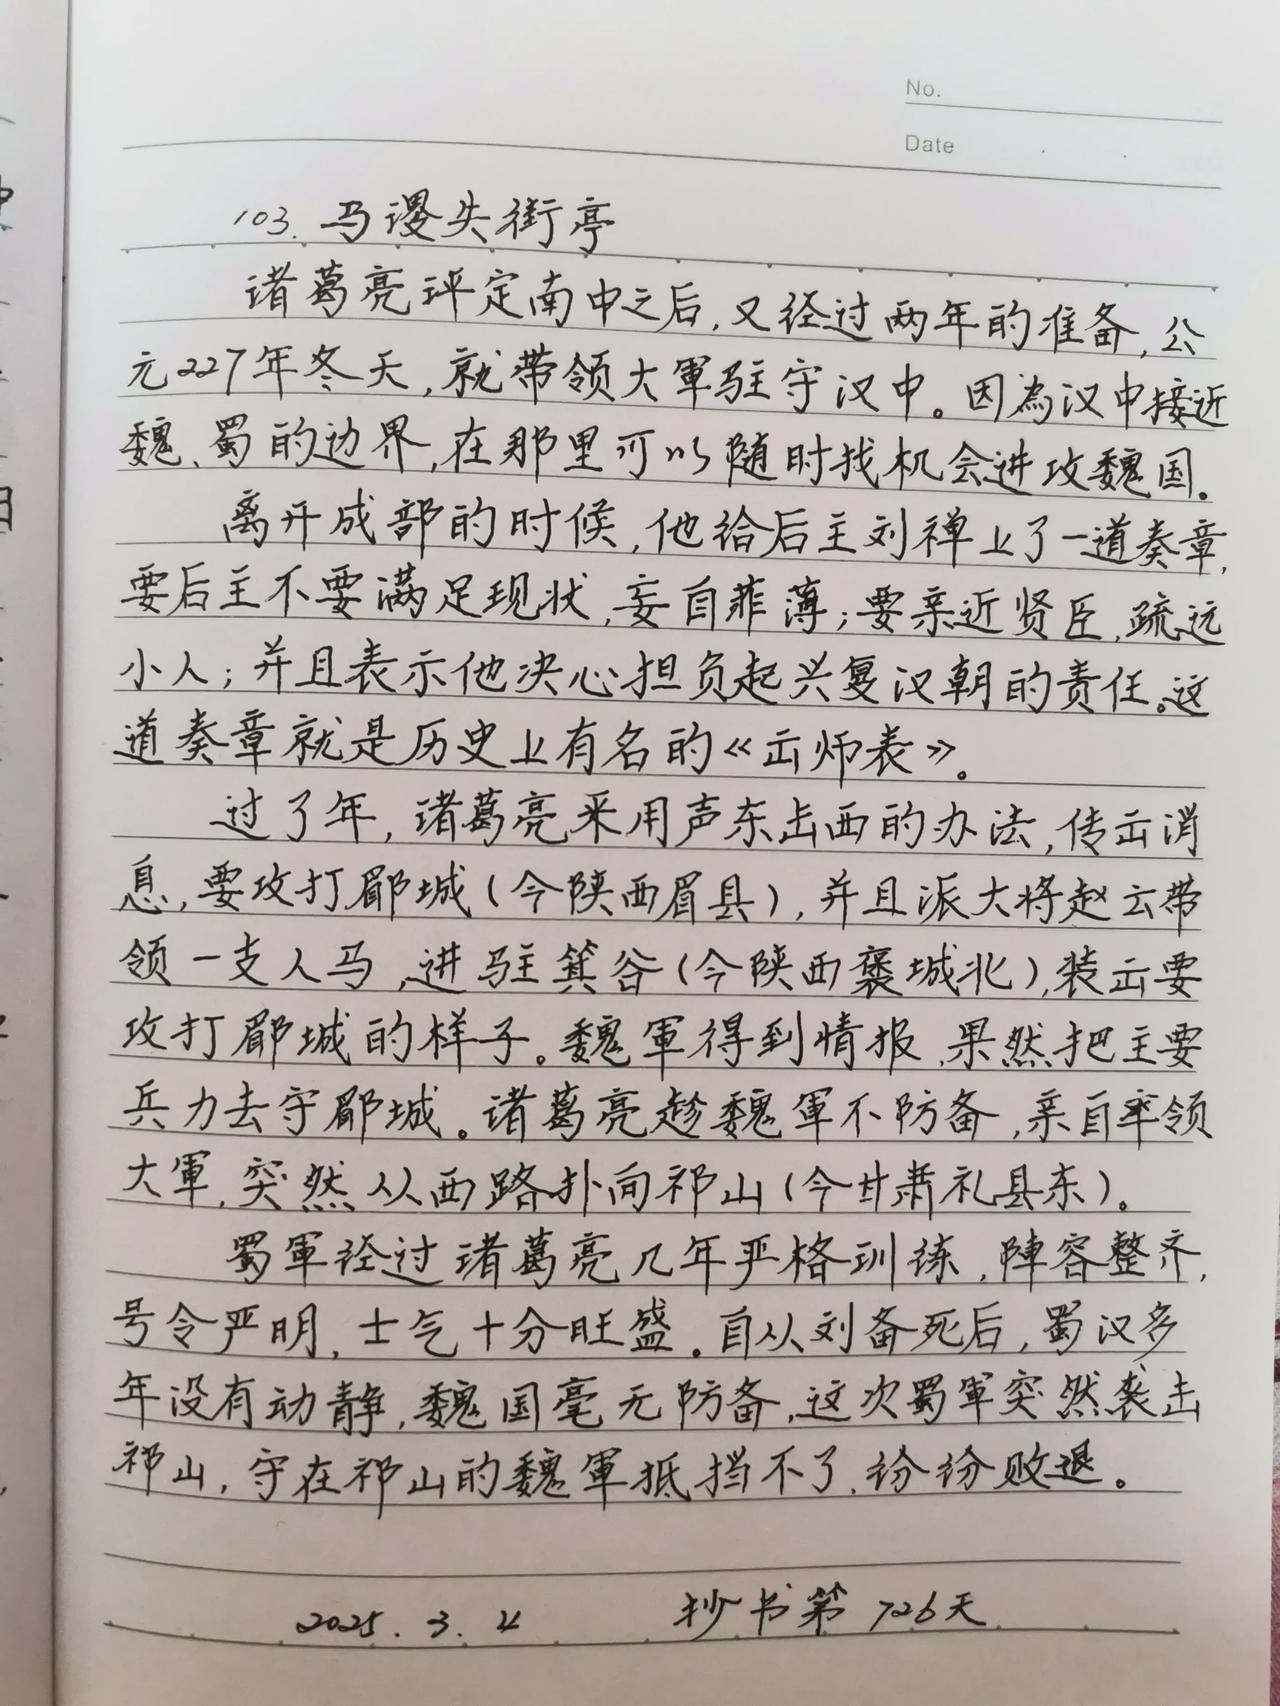 No.
Date
103. 马谡失街亭
诸葛亮评定南中之后,又经过两年的准备,公
元227年冬天,就带领大軍驻守汉中。因為汉中接近
魏、蜀的边界,在那里可以随时找机会进攻魏国。
离开成部的时候,他给后主刘禅上了一道奏章,
要后主不要满足现状,妄自菲薄;要亲近贤臣,疏远
小人;并且表示他决心担负起兴复汉朝的责任。这
道奏章就是历史上有名的《出师表》。
过了年,诸葛亮采用声东击西的办法,传出消
息,要攻打郿城(今陕西眉县),并且派大将赵云带
领一支人马,进驻箕谷(今陕西褒城北),装出要
攻打郿城的样子。魏軍得到情报,果然把主要
兵力去守郿城。诸葛亮趁魏軍不防备,亲自率领
大軍,突然从西路扑向祁山(今甘肃礼县东)。
蜀軍经过诸葛亮几年严格训练,陣容整齐,
号令严明,士气十分旺盛。自从刘备死后,蜀汉多
年没有动静,魏国毫无防备,这次蜀軍突然袭击
祁山,守在祁山的魏軍抵挡不了,纷纷败退。
2025.3.4 抄书第726天